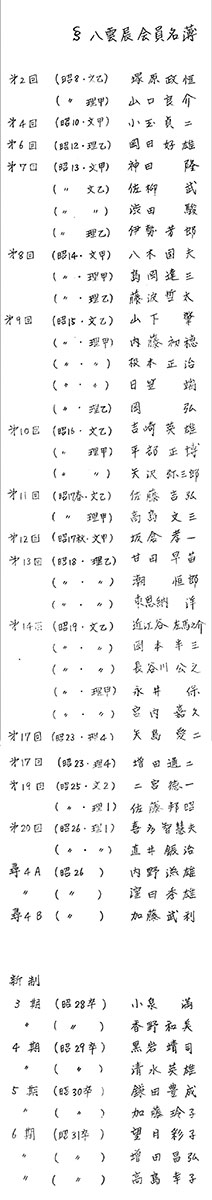 § 八雲晨会員名簿
第2回 (昭8・文乙) 塚原政恒
(〃 理甲) 山口良介
第4回 (昭10・文甲) 小玉貞二
第6回 (昭12・理乙) 岡田好雄
第7回 (昭13・文甲) 神田 隆
(〃 文乙) 佐柳 武
(〃 〃) 渋田 駿
(〃 理乙) 伊勢芳郎
第8回 (昭14・文甲) 八木国夫
(〃・理甲) 島岡達三
(〃・理乙) 藤波哲太
第9回 (昭15・文乙) 山下 肇
(〃・理甲) 内藤初穂
(〃・〃) 根本正治
(〃・〃) 日笠 端
(〃・理乙) 岡 弘
第10回 (昭16・文乙) 吉崎英雄
(〃 理甲) 平部正博
(〃 〃) 矢沢弥三郎
第11回 (昭17春・文乙) 佐藤吉弘
(〃 理甲) 高島文三
第12回 (昭17秋・文甲) 坂倉孝一
第13回 (昭18・理乙) 甘田早苗
(〃・〃) 潮 恒郎
(〃・〃) 東恩納 洋
第14回 (昭19・文乙) 近江谷左馬之介
(〃・〃) 岡本半三
(〃・〃) 長谷川公之
(〃・理甲) 永井 保
(〃・〃) 宮内嘉久
第17回 (昭23・理4) 矢島愛二
第17回 (昭23・理4) 増田通二
第19回 (昭25・文2) 二宮徳一
(〃・理1) 佐藤邦昭
第20回 (昭26・理1) 喜多智慧夫
(〃・〃) 直井鍛治
尋4A (昭26 ) 内野滋雄
〃 (〃 ) 濱田季雄
尋4B (〃 ) 加藤武利
新制
3期 (昭28卒) 小泉 満
〃 (〃) 香野和美
4期 (昭29卒) 黒岩靖司
〃 (〃) 清水英雄
5期 (昭30卒) 鎌田豊成
〃 (〃) 加藤玲子
6期 (昭31卒) 望月彩子
〃 (〃) 増田昌弘
〃 (〃) 高島幸子